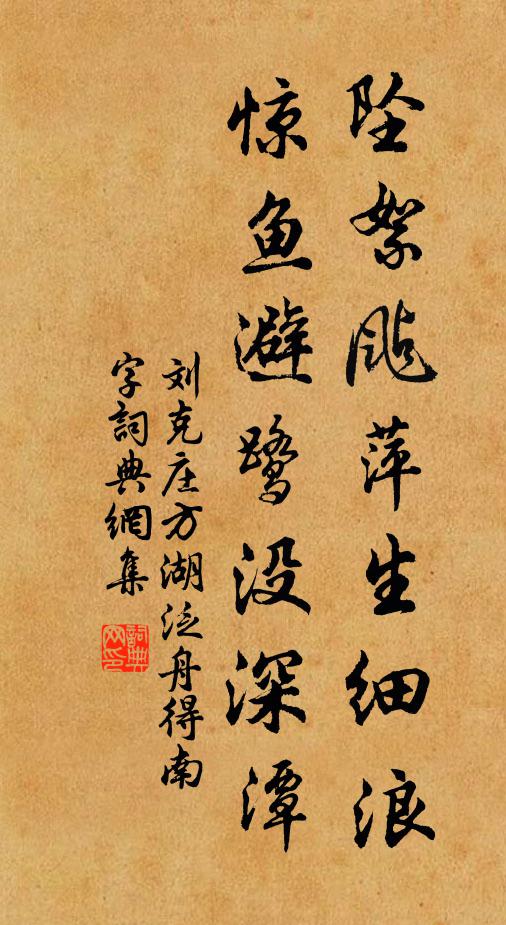 坠絮飐萍生细浪
惊鱼避鹭没深潭
刘克庄方湖泛舟得南
字詞典網集
詞典
网印